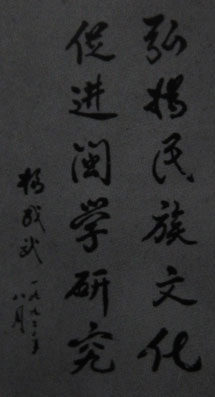 弘扬民族文化
促进闽学研究
杨成武
一九九二年
八月